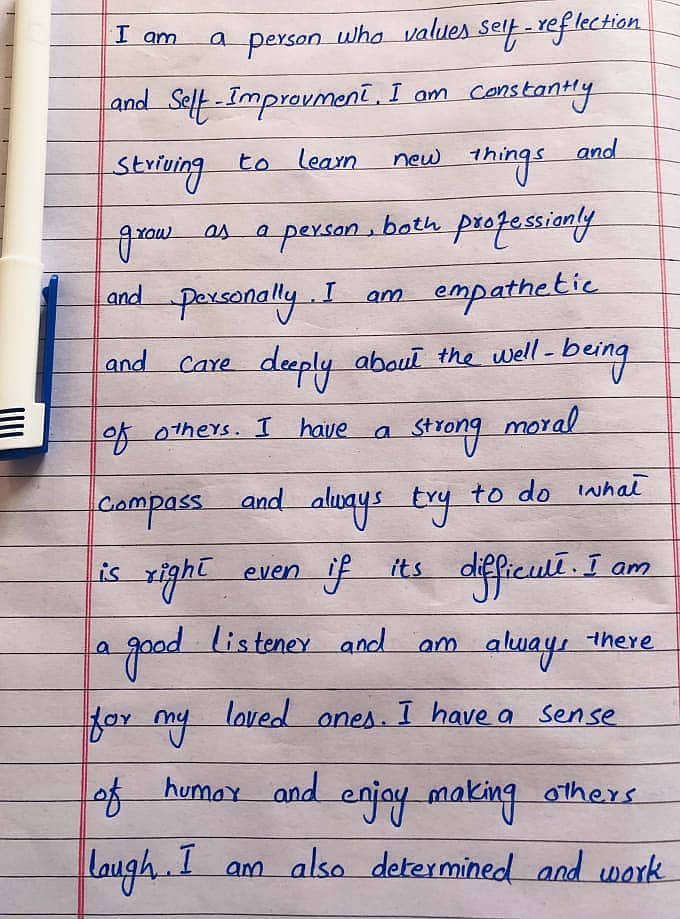 I am a person who values self-reflection
and Self-Improvment. I am constantly
striving to learn new things and
grow as a person, both professionly
and personally. I am empathetic
and care deeply about the well-being
of others. I have a strong moral
compass and always try to do what
is right even if its difficult. I am
a good listener and am always there
for my loved ones. I have a sense
of humor and enjoy making others
laugh. I am also determined and work